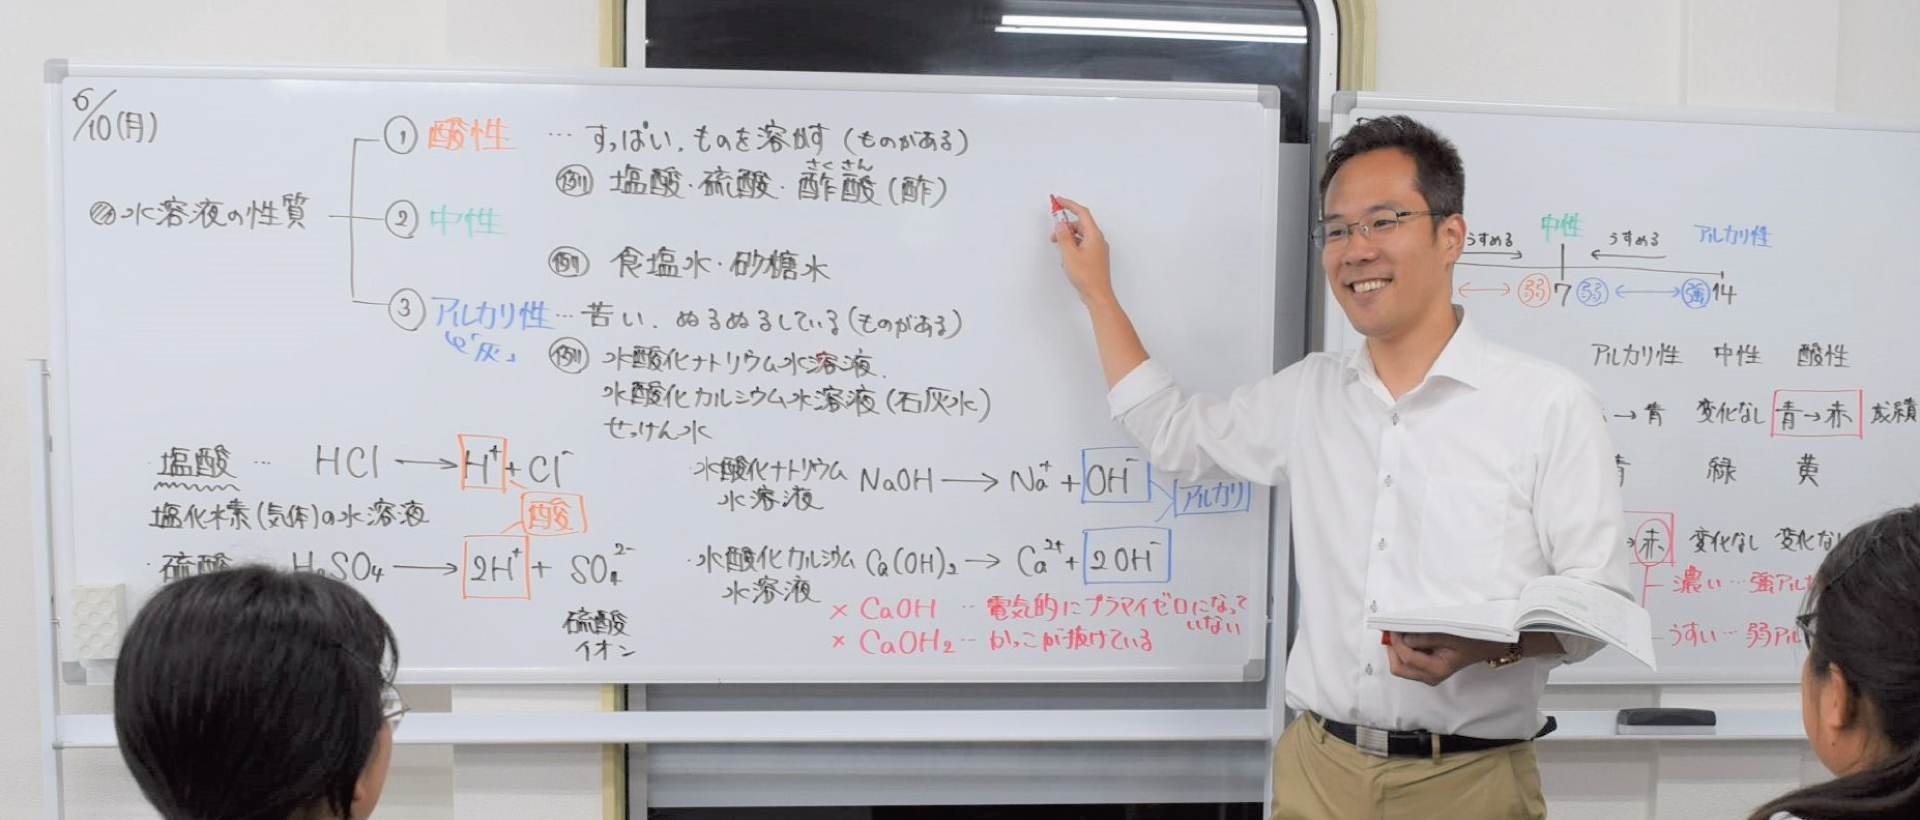 6/10(月)
水溶液の性質
① 酸性 … すっぱい、ものを溶かす(ものがある)
例 塩酸・硫酸・酢酸(酢)
さくさん
② 中性
例 食塩水・砂糖水
③ アルカリ性 … 苦い、ぬるぬるしている(ものがある)
灰」
例 水酸化ナトリウム水溶液
水酸化カルシウム水溶液(石灰水)
せっけん水
・塩酸 … HCl → H⁺ + Cl⁻
塩化水素(気体)の水溶液
酸
・硫酸 H₂SO₄ → 2H⁺ + SO₄²⁻
硫酸
イオン
・水酸化ナトリウム NaOH → Na⁺ + OH⁻
水溶液
アルカリ
・水酸化カルシウム Ca(OH)₂ → Ca²⁺ + 2OH⁻
水溶液
× CaOH … 電気的にプラマイゼロになって
いない
× CaOH₂ … かっこが抜けている
中性 アルカリ性
うすめる うすめる
弱 7 弱 強 14
アルカリ性 中性 酸性
→青 変化なし 青→赤
緑 黄
赤 変化なし 変化な
濃い … 強アル
うすい … 弱アル